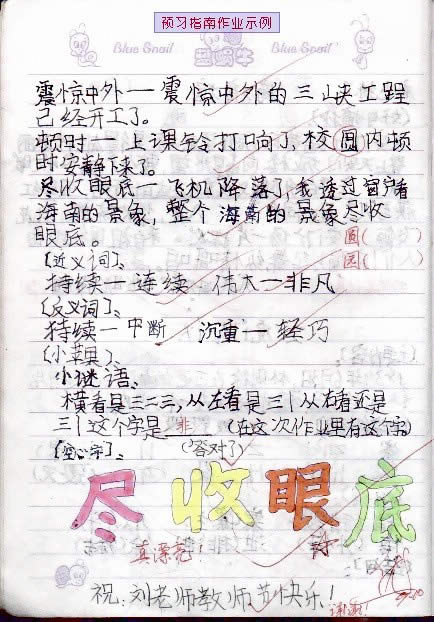 预习指南作业示例
Blue Snail
蓝蜗牛
Blue Snail
震惊中外一震惊中外的三峡工程
已经开工了。
顿时一上课铃打响了,校圆内顿
时安静下来了。
尽收眼底一飞机降落了,我透过窗户看
海南的景象,整个海南的景象尽收
眼底。
圆( )
园( )
[近义词]、
持续一连续 伟大一非凡
[反义词]、
持续一中断 沉重一轻巧
[小苹果]、
小谜语、
横看是三二三,从左看是三丨从右看还是
三丨这个字是 非 (在这次作业里有这个字)
[空心字]、 (答对了)
尽收眼底
真漂亮!
祝:刘老师教师节快乐!
谢谢!